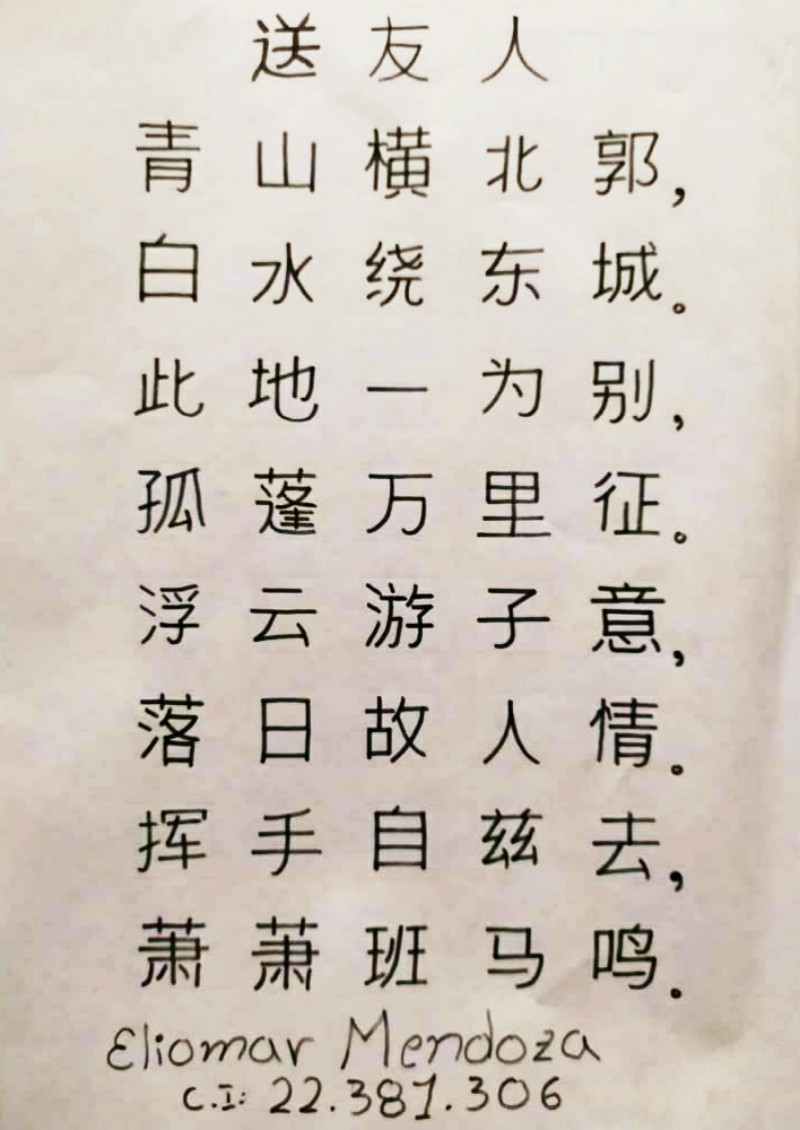 送友人
青山横北郭,
白水绕东城。
此地一为别,
孤蓬万里征。
浮云游子意,
落日故人情。
挥手自兹去,
萧萧班马鸣.
Eliomar Mendoza
C.I: 22.381.306